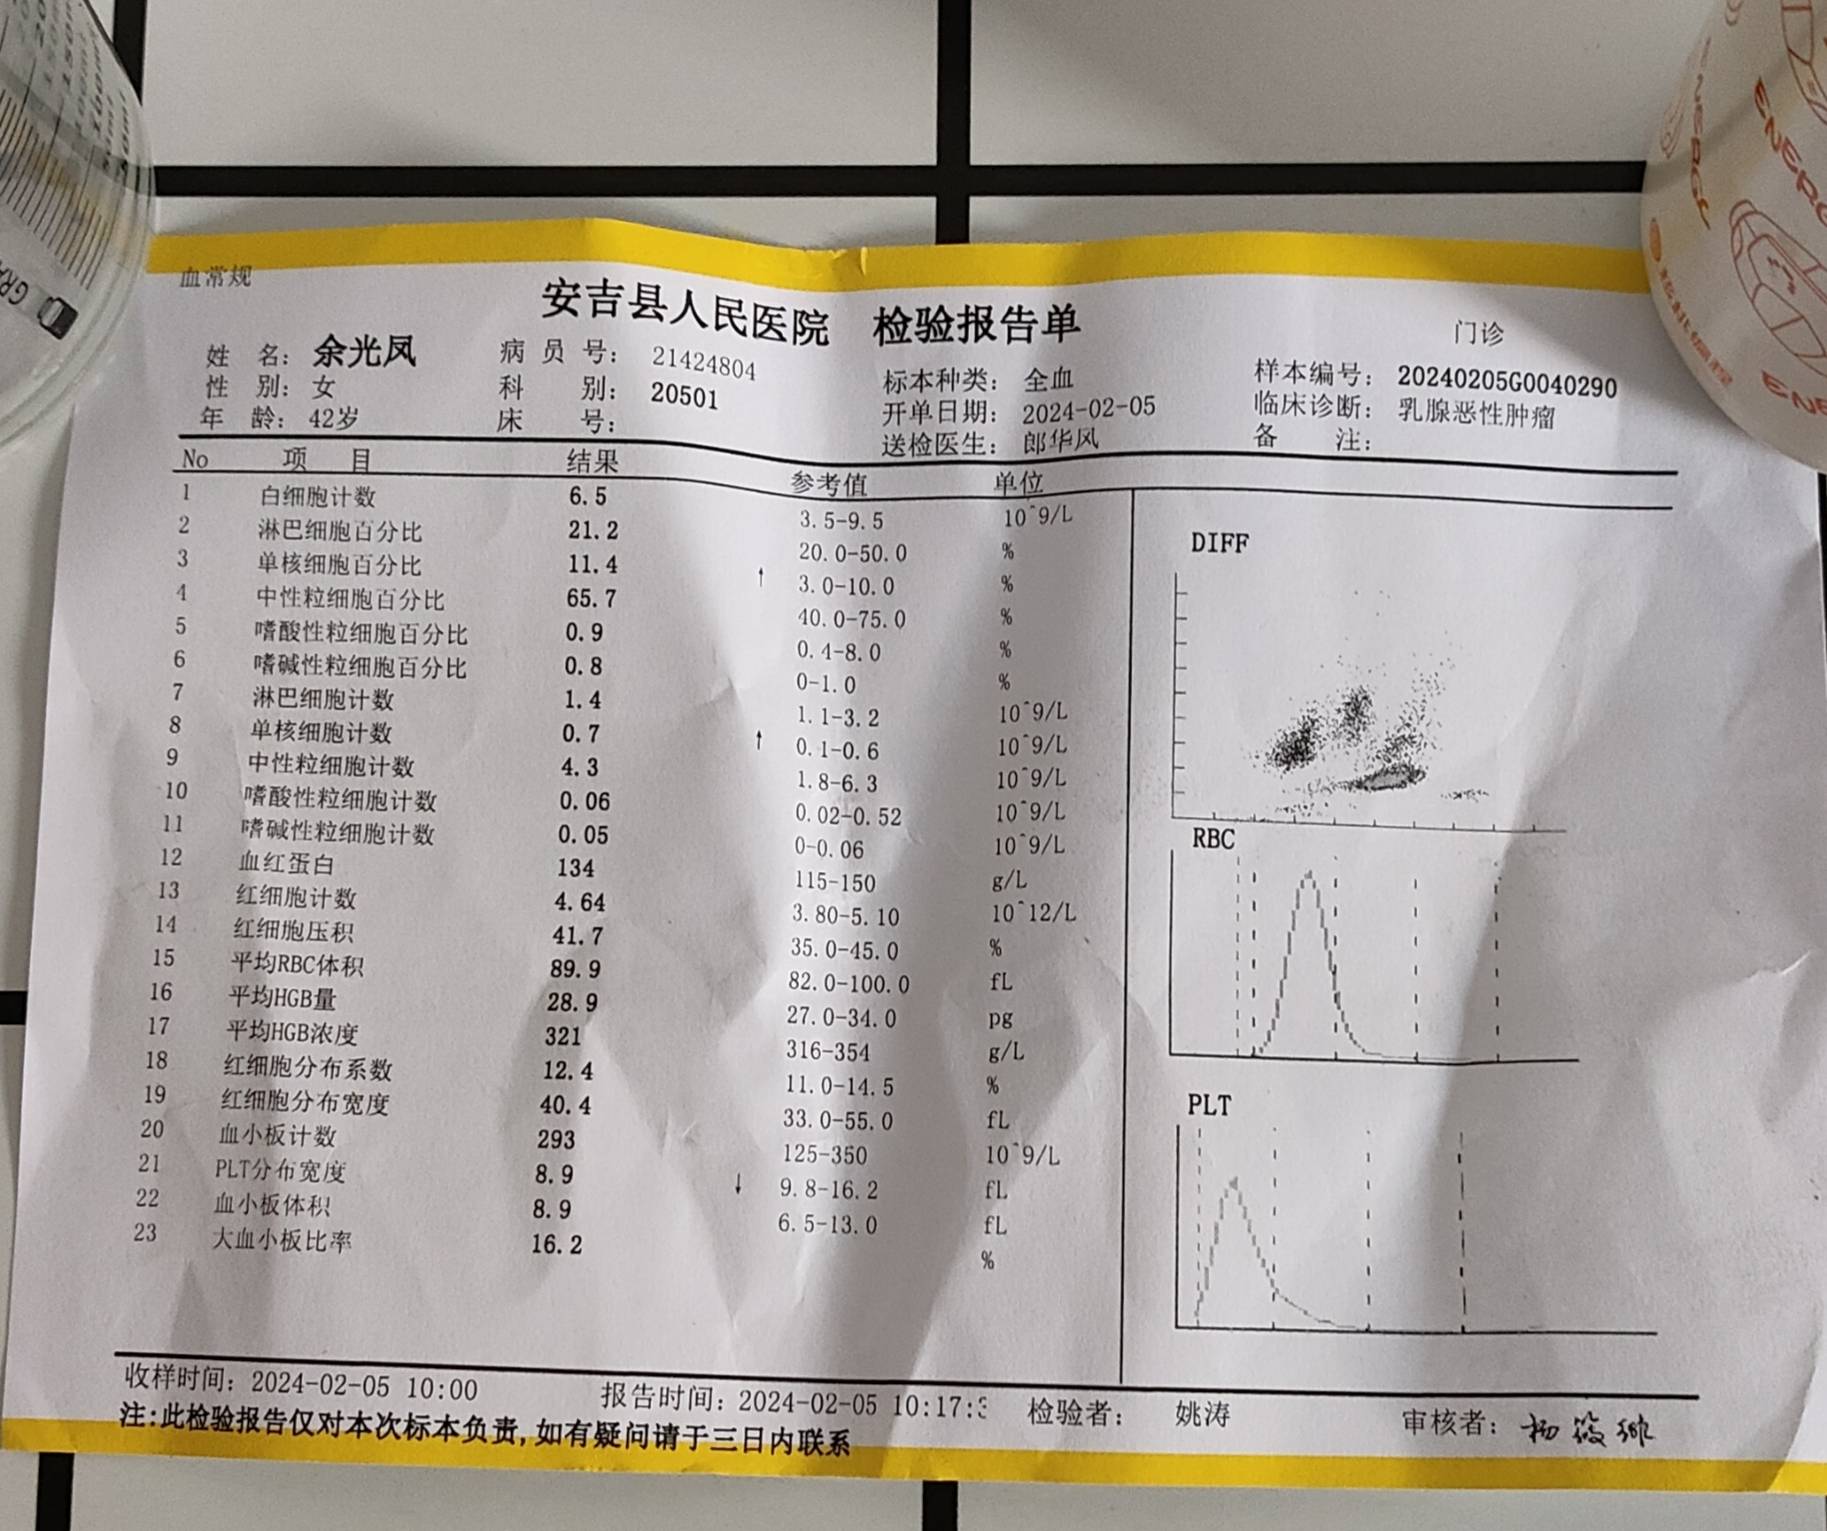 血常规
安吉县人民医院 检验报告单
门诊
姓 名: 余光凤 病 员 号: 21424804 标本种类: 全血 样本编号: 20240205G0040290
性 别: 女 科 别: 20501 开单日期: 2024-02-05 临床诊断: 乳腺恶性肿瘤
年 龄: 42岁 床 号: 送检医生: 郎华风 备 注:
No 项 目 结果 参考值 单位
1 白细胞计数 6.5 3.5-9.5 10^9/L
2 淋巴细胞百分比 21.2 20.0-50.0 %
3 单核细胞百分比 11.4 ↑ 3.0-10.0 %
4 中性粒细胞百分比 65.7 40.0-75.0 %
5 嗜酸性粒细胞百分比 0.9 0.4-8.0 %
6 嗜碱性粒细胞百分比 0.8 0-1.0 %
7 淋巴细胞计数 1.4 1.1-3.2 10^9/L
8 单核细胞计数 0.7 ↑ 0.1-0.6 10^9/L
9 中性粒细胞计数 4.3 1.8-6.3 10^9/L
10 嗜酸性粒细胞计数 0.06 0.02-0.52 10^9/L
11 嗜碱性粒细胞计数 0.05 0-0.06 10^9/L
12 血红蛋白 134 115-150 g/L
13 红细胞计数 4.64 3.80-5.10 10^12/L
14 红细胞压积 41.7 35.0-45.0 %
15 平均RBC体积 89.9 82.0-100.0 fL
16 平均HGB量 28.9 27.0-34.0 pg
17 平均HGB浓度 321 316-354 g/L
18 红细胞分布系数 12.4 11.0-14.5 %
19 红细胞分布宽度 40.4 33.0-55.0 fL
20 血小板计数 293 125-350 10^9/L
21 PLT分布宽度 8.9 ↓ 9.8-16.2 fL
22 血小板体积 8.9 6.5-13.0 fL
23 大血小板比率 16.2 %
DIFF
RBC
PLT
收样时间: 2024-02-05 10:00 报告时间: 2024-02-05 10:17:3 检验者: 姚涛 审核者:
注:此检验报告仅对本次标本负责,如有疑问请于三日内联系
ENERGY
ENERGY